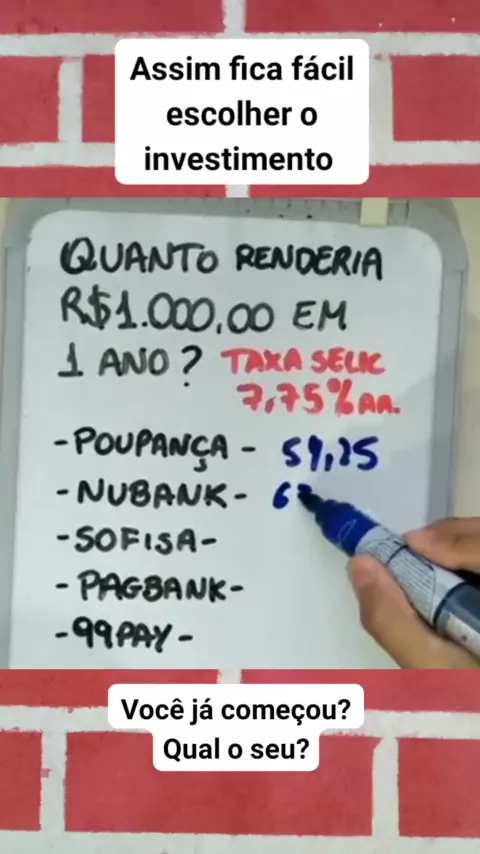 Assim fica fácil
escolher o
investimento
QUANTO RENDERIA
R$1.000,00 EM
1 ANO? TAXA SELIC
7,75% A.A.
-POUPANÇA - 54,25
-NUBANK- 6
-SOFISA-
-PAGBANK-
-99PAY-
Você já começou?
Qual o seu?